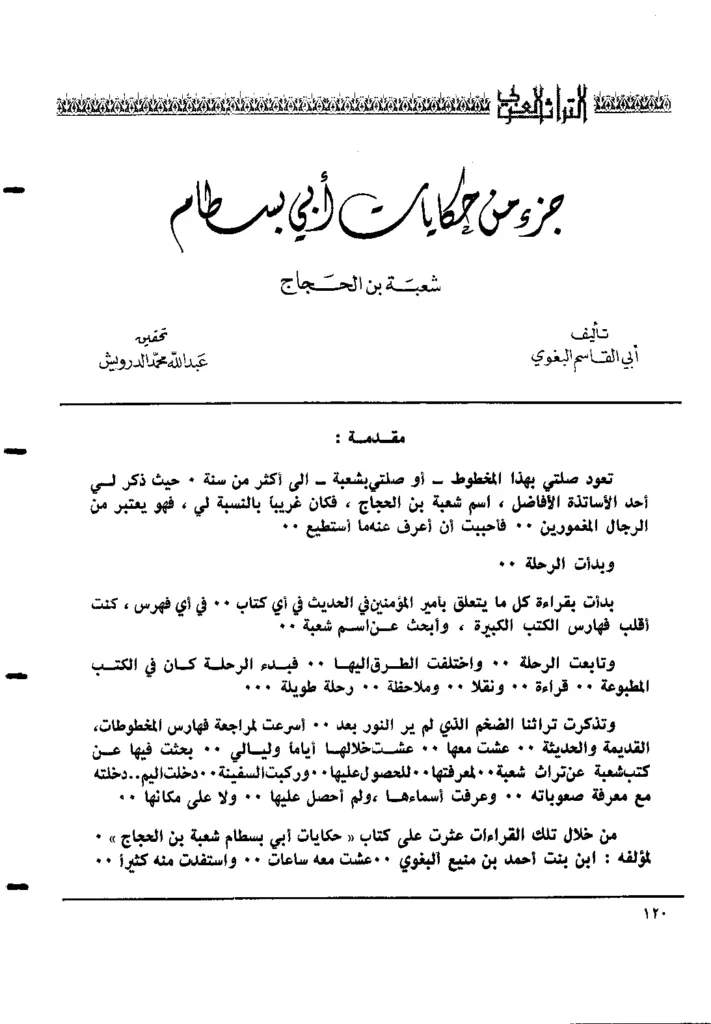 التراث العربي
جزء من حكايات أبي بسطام
شعبة بن الحجاج
تأليف
أبي القاسم البغوي
تحقيق
عبد الله محمد الدرويش
مقدمة :
تعود صلتي بهذا المخطوط ــ أو صلتي بشعبة ــ الى أكثر من سنة ٠ حيث ذكر لي
أحد الأساتذة الأفاضل ، اسم شعبة بن الحجاج ، فكان غريباً بالنسبة لي ، فهو يعتبر من
الرجال المغمورين ٠٠ فأحببت أن أعرف عنه ما أستطيع ٠٠
وبدأت الرحلة ٠٠
بدأت بقراءة كل ما يتعلق بأمير المؤمنين في الحديث في أي كتاب ٠٠ في أي فهرس ، كنت
أقلب فهارس الكتب الكبيرة ، وأبحث عن اسم شعبة ٠٠
وتابعت الرحلة ٠٠ واختلفت الطرق اليها ٠٠ فبدء الرحلة كان في الكتب
المطبوعة ٠٠ قراءة ٠٠ ونقلا ٠٠ وملاحظة ٠٠ رحلة طويلة ٠٠٠
وتذكرت تراثنا الضخم الذي لم ير النور بعد ٠٠ أسرعت لمراجعة فهارس المخطوطات،
القديمة والحديثة ٠٠ عشت معها ٠٠ عشت خلالها أياماً وليالي ٠٠ بحثت فيها عن
كتب شعبة عن تراث شعبة ٠٠ لمعرفتها ٠٠ للحصول عليها ٠٠ وركبت السفينة ٠٠ دخلت اليم.. دخلته
مع معرفة صعوباته ٠٠ وعرفت أسماءها ، ولم أحصل عليها ٠٠ ولا على مكانها ٠٠
من خلال تلك القراءات عثرت على كتاب « حكايات أبي بسطام شعبة بن الحجاج » ٠
لمؤلفه : ابن بنت أحمد بن منيع البغوي ٠٠ عشت معه ساعات ٠٠ واستفدت منه كثيراً ٠٠
١٢٠